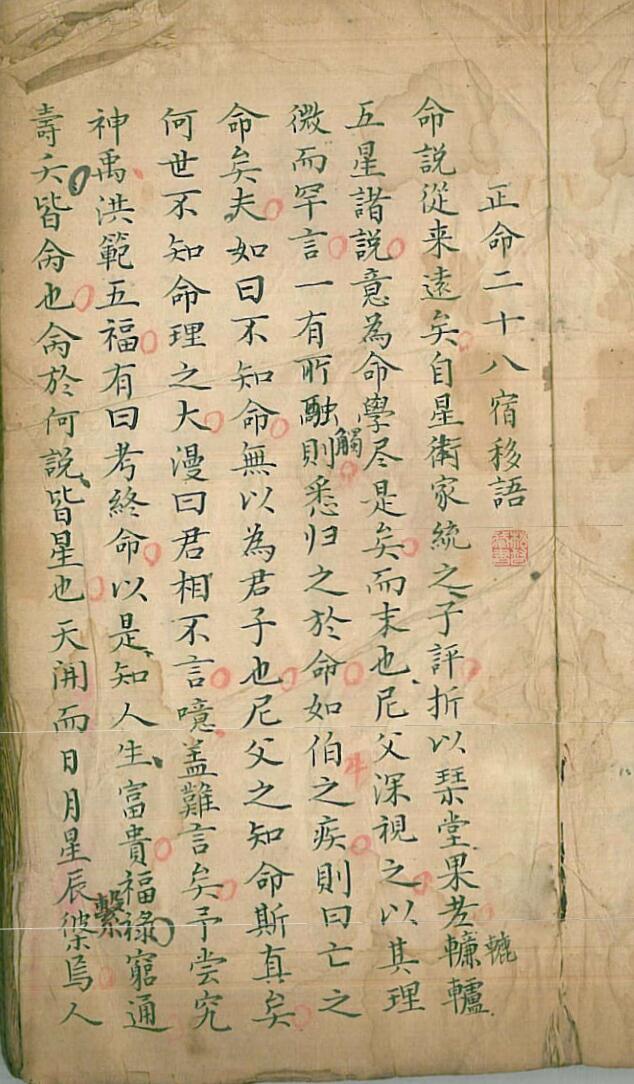 正命二十八宿移語
命說從来遠矣自星術家統之子評折以琹堂果老轆轤
五星諸說意為命學尽是矣而末也尼父深視之以其理
微而罕言一有所融則悉归之於命如伯之疾則曰亡之
觸
牛
命矣夫如曰不知命無以為君子也尼父之知命斯真矣
何世不知命理之大漫曰君相不言噫盖難言矣予尝究
神禹洪範五福有曰考終命以是知人生富貴福祿窮通
壽夭皆命也命於何說皆星也天開而日月星辰繫焉人
繫